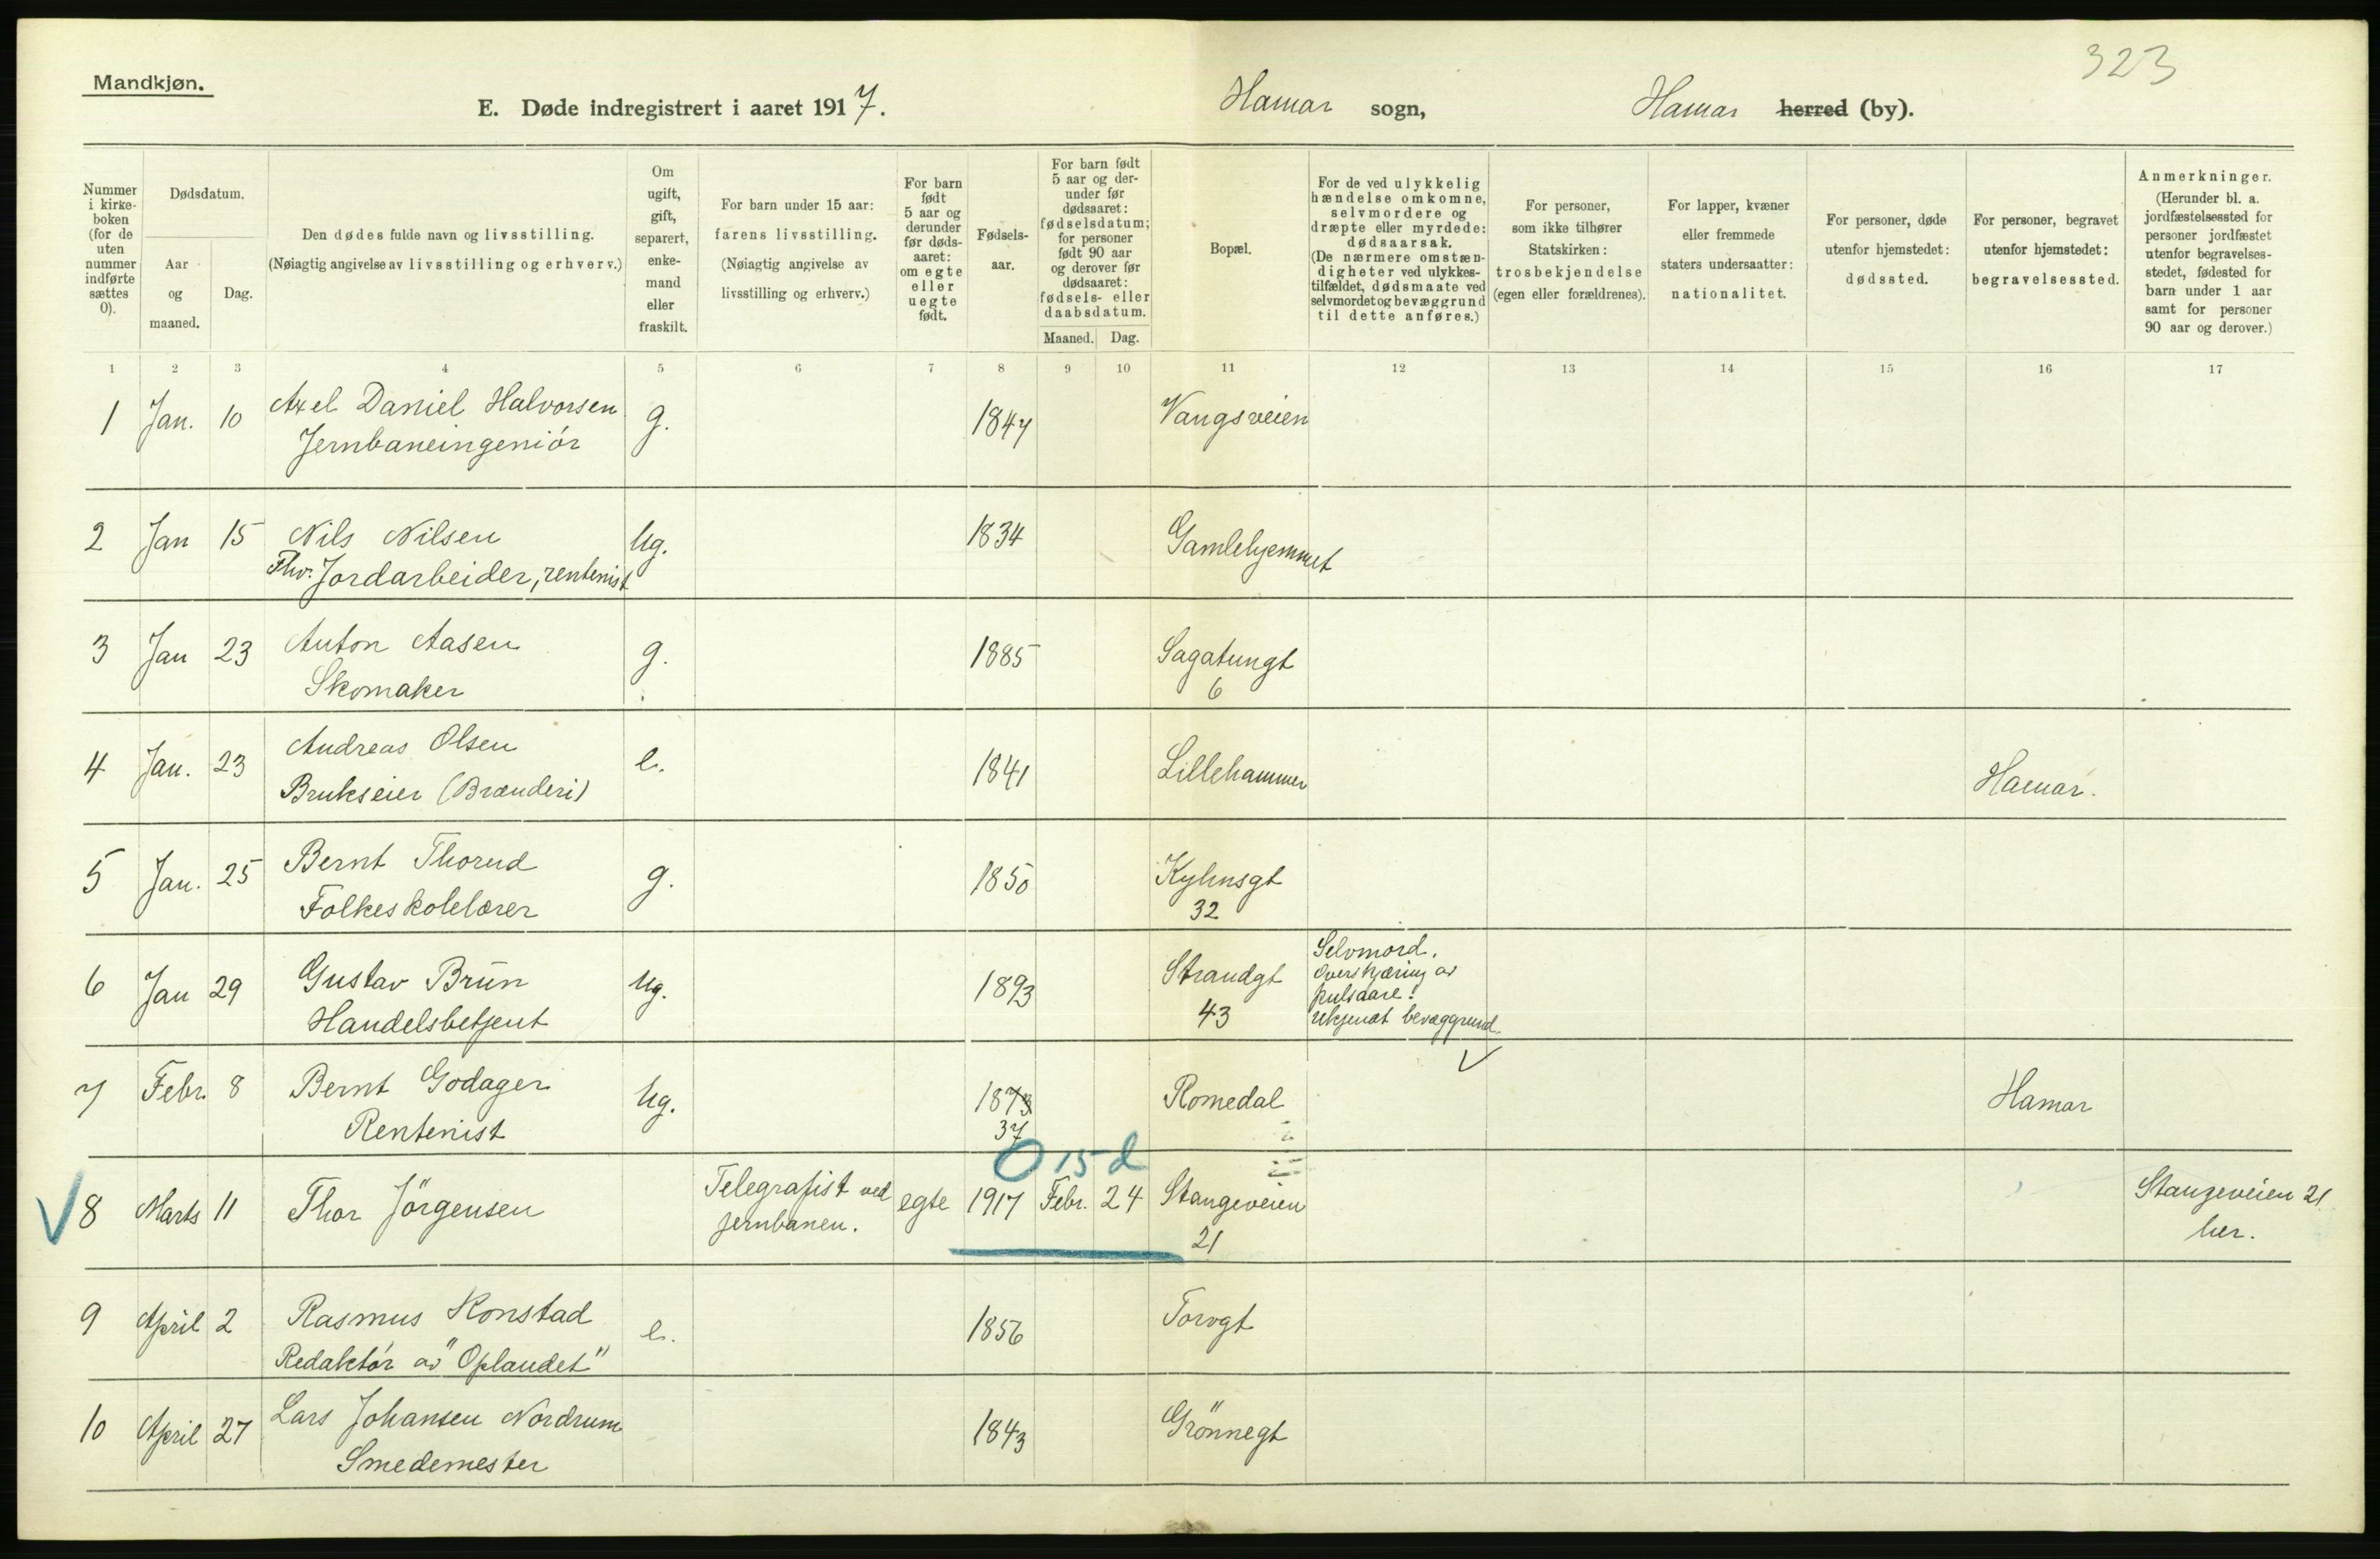 323
Mandkjøn.
E. Døde indregistrert i aaret 1917.
Hamar sogn,
Hamar herred (by).
Nummer i kirke-boken (for de uten nummer indførte sættes 0).
Dødsdatum.
Aar og maaned.
Dag.
Den dødes fulde navn og livsstilling.
(Nøiagtig angivelse av livsstilling og erhverv.)
Om ugift, gift, separert, enke-mand eller fraskilt.
For barn under 15 aar:
farens livsstilling.
(Nøiagtig angivelse av
livsstilling og erhverv.)
For barn født 5 aar og derunder før døds-aaret: om egte eller uegte født.
Fødsels-aar.
For barn født 5 aar og der-under før dødsaaret: fødselsdatum; for personer født 90 aar og derover før dødsaaret: fødsels- eller daabsdatum.
Maaned. Dag.
Bopæl.
For de ved ulykkelig hændelse omkomne, selvmordere og dræpte eller myrdede: dødsaarsak. (De nærmere omstæn-digheter ved ulykkes-tilfældet, dødsmaate ved selvmordet og bevæggrund til dette anføres.)
For personer, som ikke tilhører Statskirken: trosbekjendelse (egen eller forældrenes).
For lapper, kvæner eller fremmede staters undersaatter: nationalitet.
For personer, døde utenfor hjemstedet: dødssted.
For personer, begravet utenfor hjemstedet: begravelsessted.
Anmerkninger. (Herunder bl. a. jordfæstelsessted for personer jordfæstet utenfor begravelses-stedet, fødested for barn under 1 aar samt for personer 90 aar og derover.)
1 2 3 4 5 6 7 8 9 10 11 12 13 14 15 16 17
1 Jan. 10 Axel Daniel Halvorsen g. 1847 Vangsveien
Jernbaneingeniör
2 Jan 15 Nils Nilsen Ug. 1834 Gamlehjemmet
Fhv. Jordarbeider, rentenist
3 Jan 23 Anton Aasen g. 1885 Sagatungt
Skomaker 6
4 Jan. 23 Andreas Olsen e. 1841 Lillehammer Hamar.
Brukseier (Brænderi)
5 Jan. 25 Bernt Thorud g. 1850 Kyhnsgt
Folkeskolelærer 32
6 Jan 29 Gustav Brun Ug. 1893 Strandgt
Handelsbetjent 43
Selvmord.
Overskjæring av
pulsaare.
ukjendt bevæggrund.
7 Febr. 8 Bernt Godager Ug. 1873 Romedal Hamar
Rentenist 37
0 15 d
8 Marts 11 Thor Jörgensen Telegrafist ved egte 1917 Febr. 24 Stangeveien Stangeveien 21
jernbanen. 21 her.
9 April 2 Rasmus Konstad e. 1856 Torvgt
Redaktör av "Oplandet"
10 April 27 Lars Johansen Nordrum 1843 Grönnegt
Smedemester